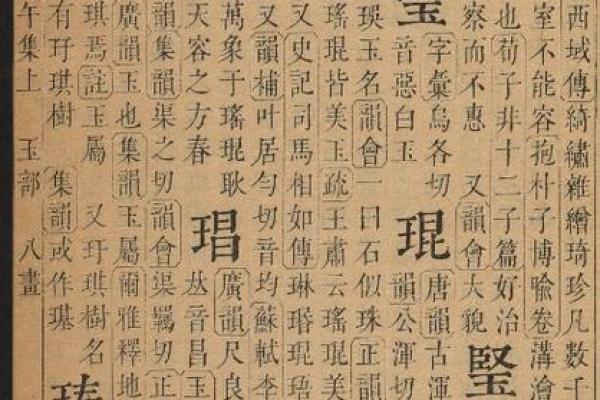 西域傳綺繡雜繒琦珍凡數千
室不能容抱朴子博喻卷溝澮
也荀子非十二子篇好治
察而不惠 又韻會大貌
字彙烏各切
音惡白玉
琨
唐韻古渾
韻公渾切
玉名韻會一曰石似珠正韻
瑤琨皆美玉疏王肅云瑤琨美
又史記司馬相如傳琳琨珸
又韻補叶居勻切音均蘇軾李
萬象于瑤琨耿
天容之方春
琩
廣韻尺良
𠀤音昌玉
韻集韻渠之切韻會渠羈切正
廣韻玉也集韻玉屬爾雅釋地
琪焉註玉屬 又玗琪樹名
有玗琪樹 集韻或作璂
午集上 玉部 八畫